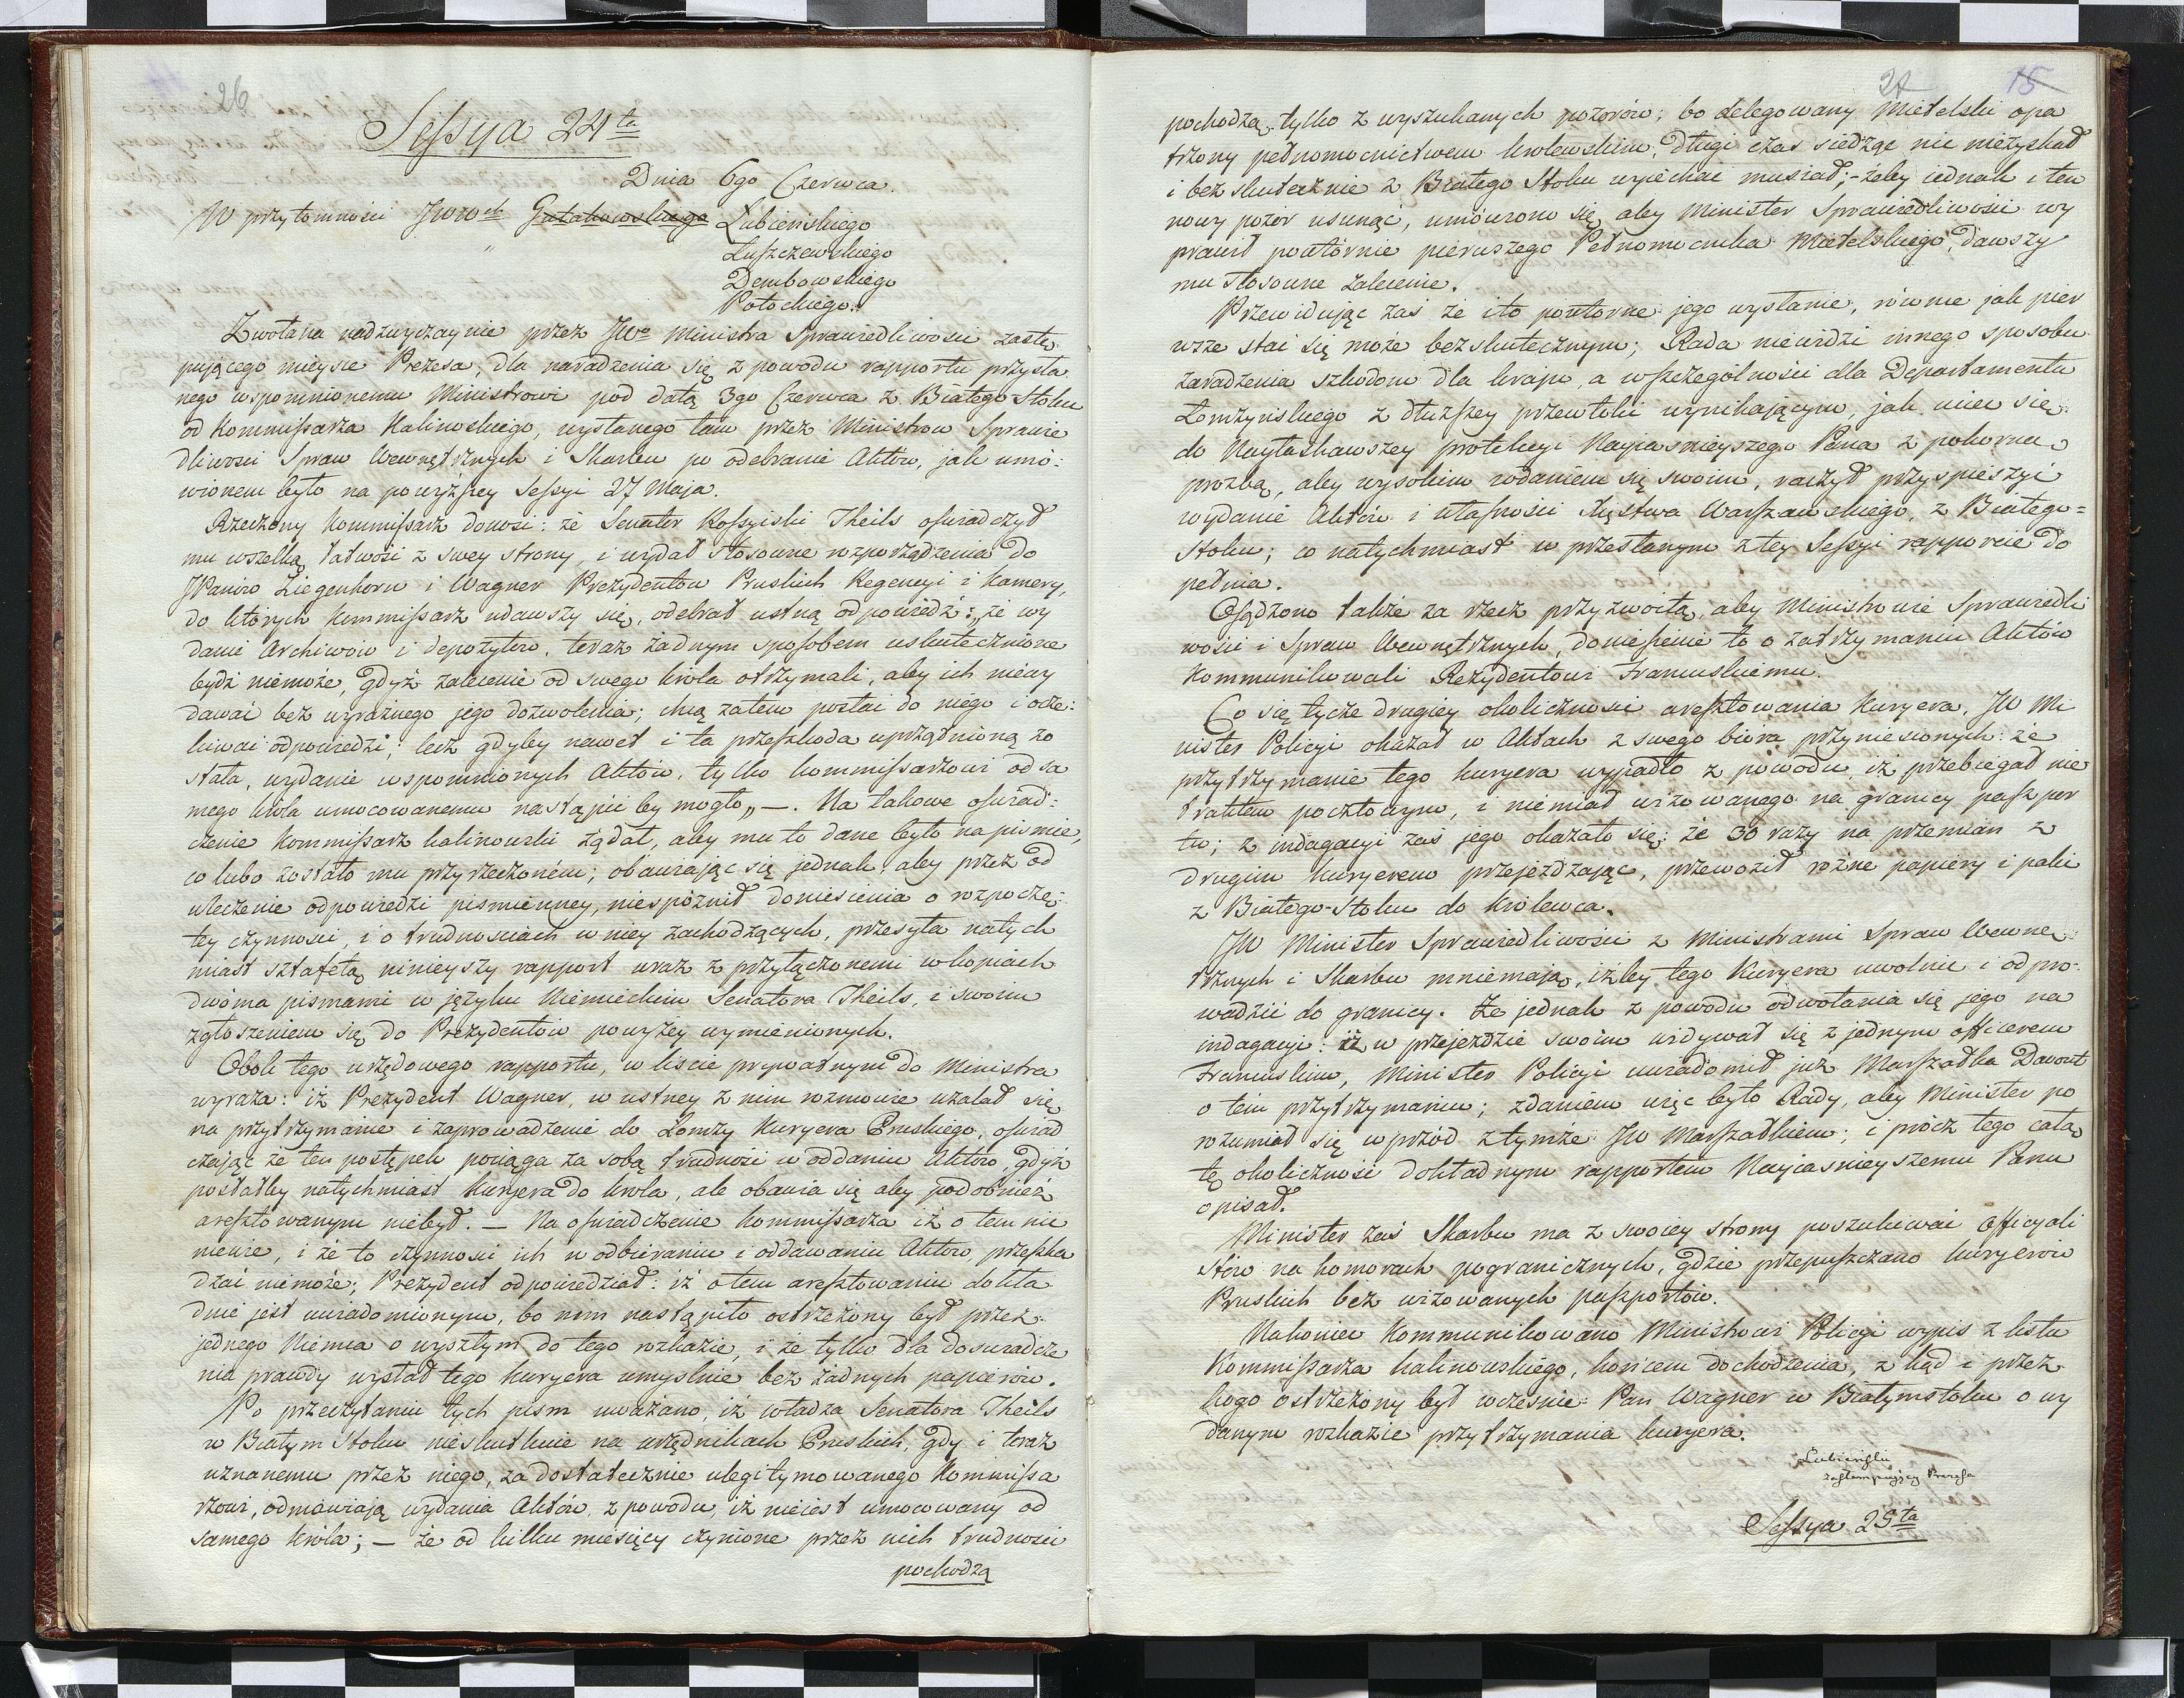 26
Sessya 24ta
Dnia 6go Czerwca.
W przytomności JWWch Gutakowskiego Lubieńskiego
" Łuszczewskiego
Dembowskiego
Potockiego.
Zwołana nadzwyczaynie przez JWo Ministra Sprawiedliwości zastę-
pującego mieysce Prezesa, dla naradzenia się z powodu rapportu przysła
nego wspomnionemu Ministrowi pod datą 3go Czerwca z Białego Stoku
od Kommissarza Kalinoskiego, wysłanego tam przez Ministrów Sprawie
dliwości Spraw Wewnętrznych i Skarbu po odebranie Aktów, jak umó:
wionem było na powyższey Sessyi 27 Maja.
Rzeczony Kommissarz donosi: że Senator Rossyiski Theils oświadczył
mu wszelką łatwość z swey strony, i wydał stosowne rozporządzenia do
JPanów Ziegenhorn i Wagner Prezydentów Pruskich Regencyi i Kamery,
do których Kommissarz udawszy się, odebrał ustną odpowiedź: „że wy
danie Archiwów i depozytów, teraz żadnym sposobem uskutecznione
bydź niemoże, gdyż zalecenie od swego króla otrzymali, aby ich niewy
dawać bez wyraźnego jego dozwolenia; chcą zatem posłać do niego i ocze:
kiwać odpowiedzi; lecz gdyby nawet i ta przeszkoda uprzątnioną zo
stała, wydanie wspomnionych Aktów, tylko kommissarzowi od sa
mego króla umocowanemu nastąpić by mogło„ —. Na takowe oświad:
czenie Kommissarz kalinowski żądał, aby mu to dane było na piśmie,
co lubo zostało mu przyrzeczoném; obawiając się jednak aby przez od
wleczenie odpowiedzi pismienney, niespóźnił doniesienia o rozpoczę-
tey czynności, i o trudnosciach w niey zachodzących, przesyła natych
miast sztafetą ninieyszy rapport wraz z przyłączonemi w kopiach
dwóma pismami w języku Niemieckim Senatora Theils, i swoim
zgłoszeniem się do Prezydentów powyżey wymienionych.
Obok tego urzędowego rapportu, w liscie prywatnym do Ministra
wyraża: iż Prezydent Wagner, w ustney z nim rozmowie użalał się
na przytrzymanie i zaprowadzenie do Łomży Kuryera Pruskiego, oświad
czając że ten postępek pociąga za sobą trudność w oddaniu Aktów, gdyż
posłałby natychmiast Kuryera do króla, ale obawia się aby podobnież
aresztowanym niebył. — Na oświadczenie Kommissarza iż o tem nie
niewie, i że to czynności ich w odbieraniu i oddawaniu Aktów, przeszka
dzać niemoże; Prezydent odpowiedział: iż o tem aresztowaniu dokła
dnie jest uwiadomionym, bo nim nastąpiło ostrzeżony był przez
jednego Niemca o wyszłym do tego rozkazie, i że tylko dla doswiadcze
nia prawdy wysłał tego kuryera umyślnie bez żadnych papierów.
Po przeczytaniu tych pism uważano, iż władza Senatora Theils
w Białym Stoku nieskutkuie na urzędnikach Pruskich, gdy i teraz
uznanemu przez niego, za dostatecznie ulegitymowanego Kommissa
rzowi, odmawiają wydania Aktów, z powodu, iż nieiest umocowany od
samego króla; — że od kilku miesięcy czynione przez nich trudności
pochodzą
27 15
pochodzą tylko z wyszukanych pozorów; bo delegowany Mielelski opa
trzony pełnomocnictwem krolewskim, długi czas siedząc nic niezyskał
i bezskutecznie z Białego Stoku wyiechać musiał;- żeby iednak i ten
nowy pozór usunąć, umówiono się, aby Minister Sprawiedliwości wy
prawił powtórnie pierwszego Pełnomocnika Mielelskiego, dawszy
mu stosowne zalecenie.
Przewidując zaś że i to powtórne jego wysłanie, równie jak pier
wsze stać się może bezskutecznym; Rada niewidzi innego sposobu
zaradzenia szkodom dla kraju, a wszczególności dla Departamentu
Łomżyńskiego z dłuższey przewłoki wynikającym, jak uciec się
do Nayłaskawszey protekcyi Nayiasnieyszego Pana z pokorną
prozbą, aby wysokim wdaniem się swoim, raczył przyspieszyć
wydanie Aktów i własności Xięstwa Warszawskiego, z Białego=
Stoku; co natychmiast w przesłanym z tey Sessyi rapporcie do
pełnia.
Osądzono także za rzecz przyzwoitą, aby Ministrowie Sprawiedli
wości i Spraw Wewnętrznych, doniesienie to o zatrzymaniu Aktów
kommunikowali Rezydentowi Francuskiemu.
Co się tycze drugiey okoliczności aresztowania kuryera, JW Mi
nister Policyi okazał w Aktach z swego bióra przyniesionych: że
przytrzymanie tego kuryera wypadło z powodu, iż przebiegał nie
traktem pocztowym, i niemiał wizowanego na granicy paszpor
tu; z indagacyi zaś jego okazało się: że 30 razy na przemian z
drugim kuryerem przejeżdzając, przewoził rożne papiery i paki
z Białego-Stoku do Królewca.
JW Minister Sprawiedliwości z Ministrami Spraw Wewnę
trznych i Skarbu mniemają, iżby tego Kuryera uwolnić i odpro-
wadzić do granicy. Że jednak z powodu odwołania się jego na
indagacyi: iż w przejeździe swoim widywał się z jednym officerem
Francuskim, Minister Policyi uwiadomił już Marszałka Davout
o tém przytrzymaniu; zdaniem więc było Rady, aby Minister po
rozumiał się wprzód z tymże JW Marszałkiem; i prócz tego całą
tę okoliczność dokładnym rapportem Nayiasnieyszemu Panu
opisał.
Minister zaś Skarbu ma z swoiey strony poszukiwać Officyali
stów na komorach pogranicznych, gdzie przepuszczano kuryerów
Pruskich bez wizowanych paszportów.
Nakoniec kommunikowano Ministrowi Policyi wypis z listu
Kommissarza kalinowskiego, końcem dochodzenia, zkąd i przez
kogo ostrzeżony był wczesnie Pan Wagner w Białymstoku o wy
danym rozkazie przytrzymania kuryera.
Lubieński
zastempujący Prezesa
Sessya 25ta